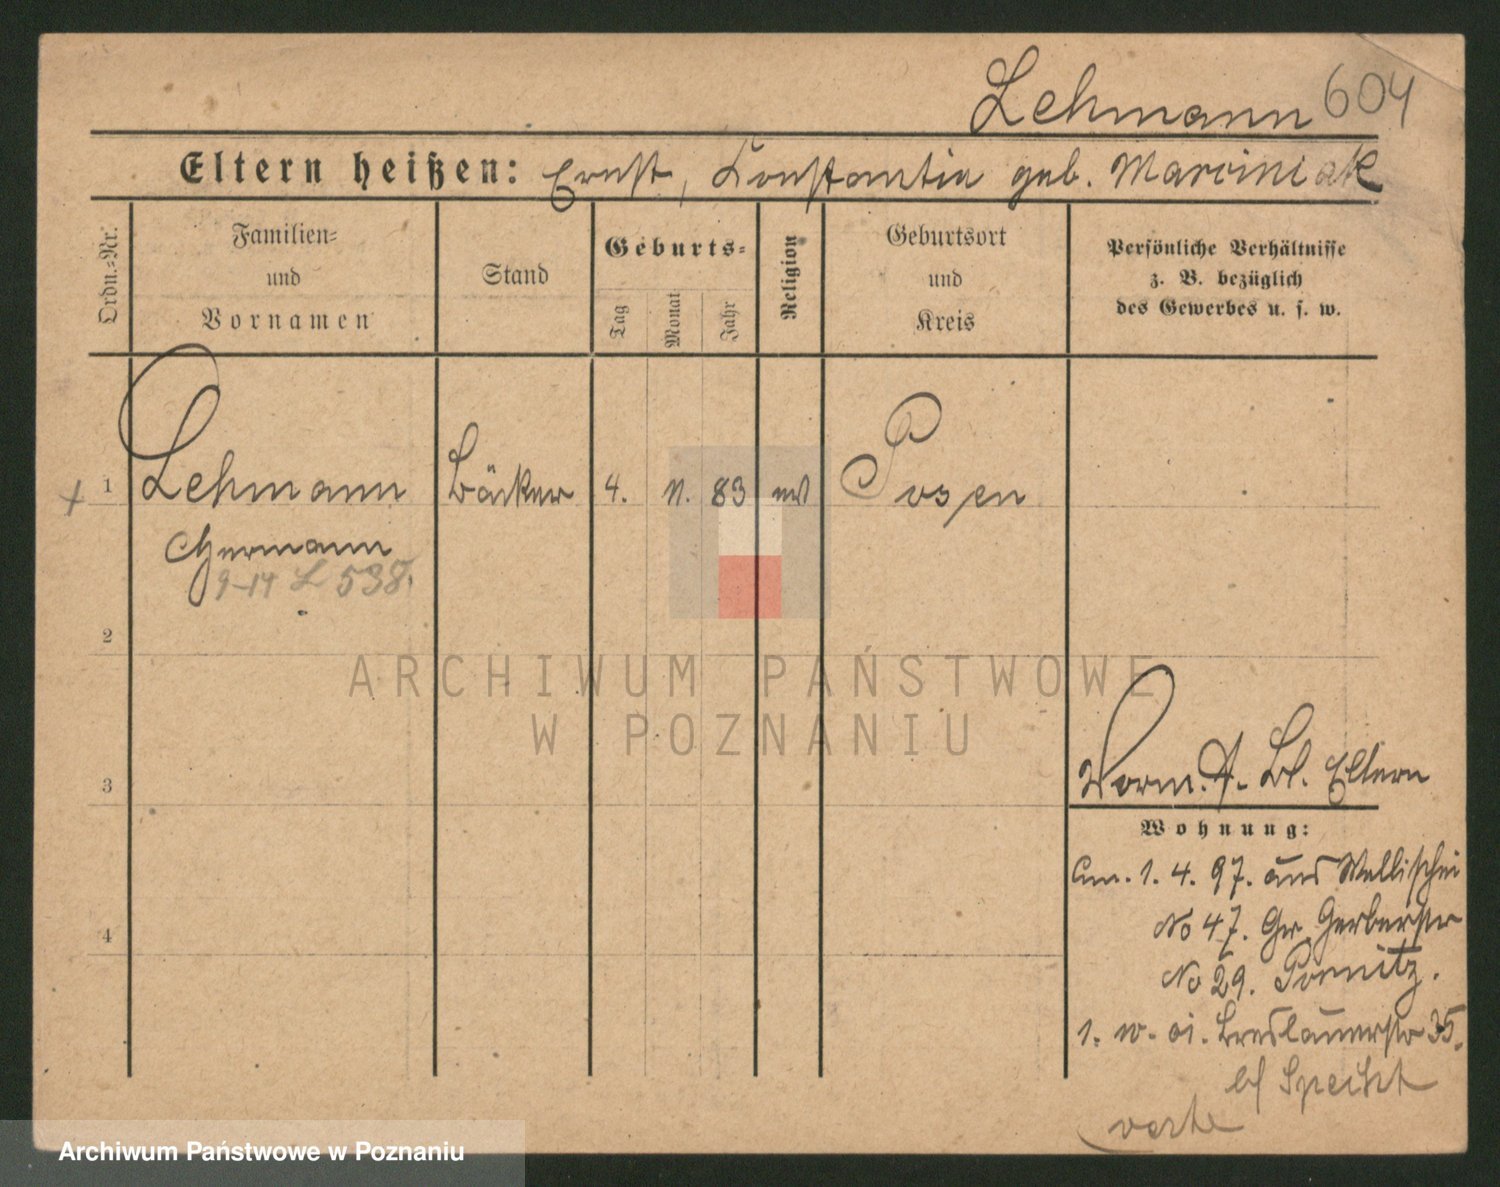 Lehmann 604
Eltern heißen: Ernst, Konstantia geb. Marciniak
Ordn.-Nr.
Familien-
und
Vornamen
Stand
Geburts-
Tag
Monat
Jahr
Religion
Geburtsort
und
Kreis
Persönliche Verhältnisse
z. B. bezüglich
des Gewerbes u. s. w.
1 Lehmann Bäcker 4. 11. 83 Posen
Hermann
9-14 L 538.
2
3
4
ARCHIWUM PAŃSTWOWE
W POZNANIU
Eltern
Wohnung:
am. 1. 4. 97. aus Wallischei
No 47. Gr. Gerberstr
No 29.
1. 10. 01. Breslauerstr 35.
bl Specht
Archiwum Państwowe w Poznaniu